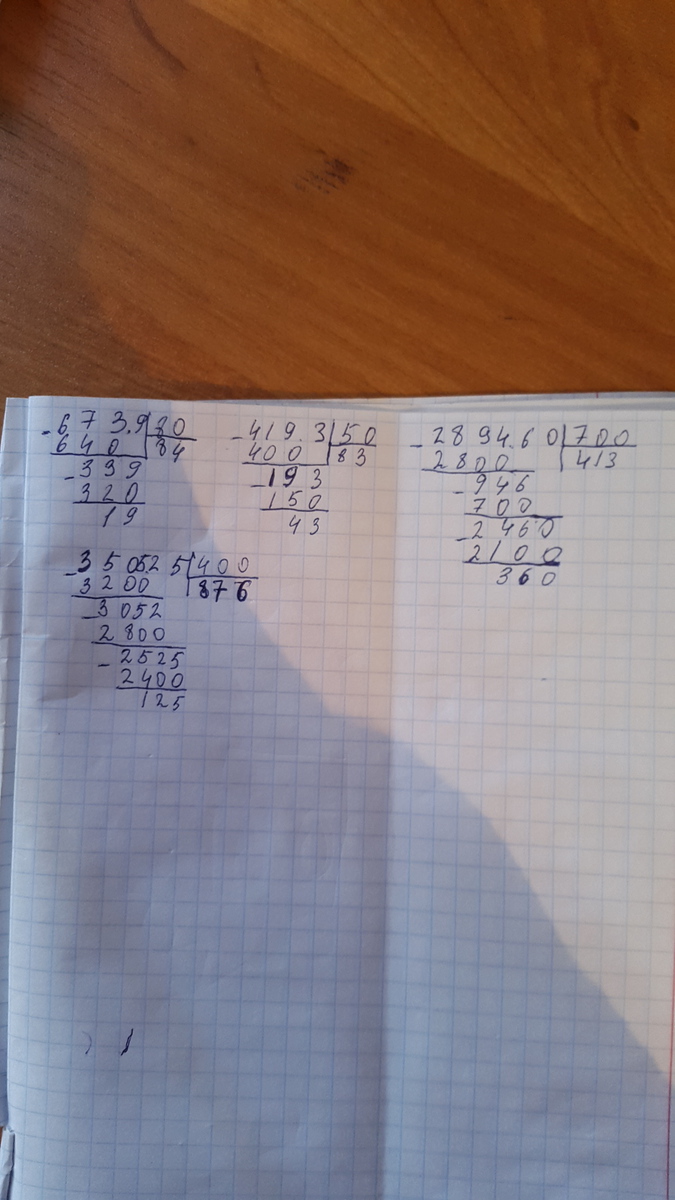 - 673.9 80
640 84
- 339
320
19
- 419.3 50
400 83
- 193
150
43
- 2894.60 700
2800 413
- 946
700
- 2460
2100
360
- 350525 400
3200 876
- 3052
2800
- 2525
2400
125